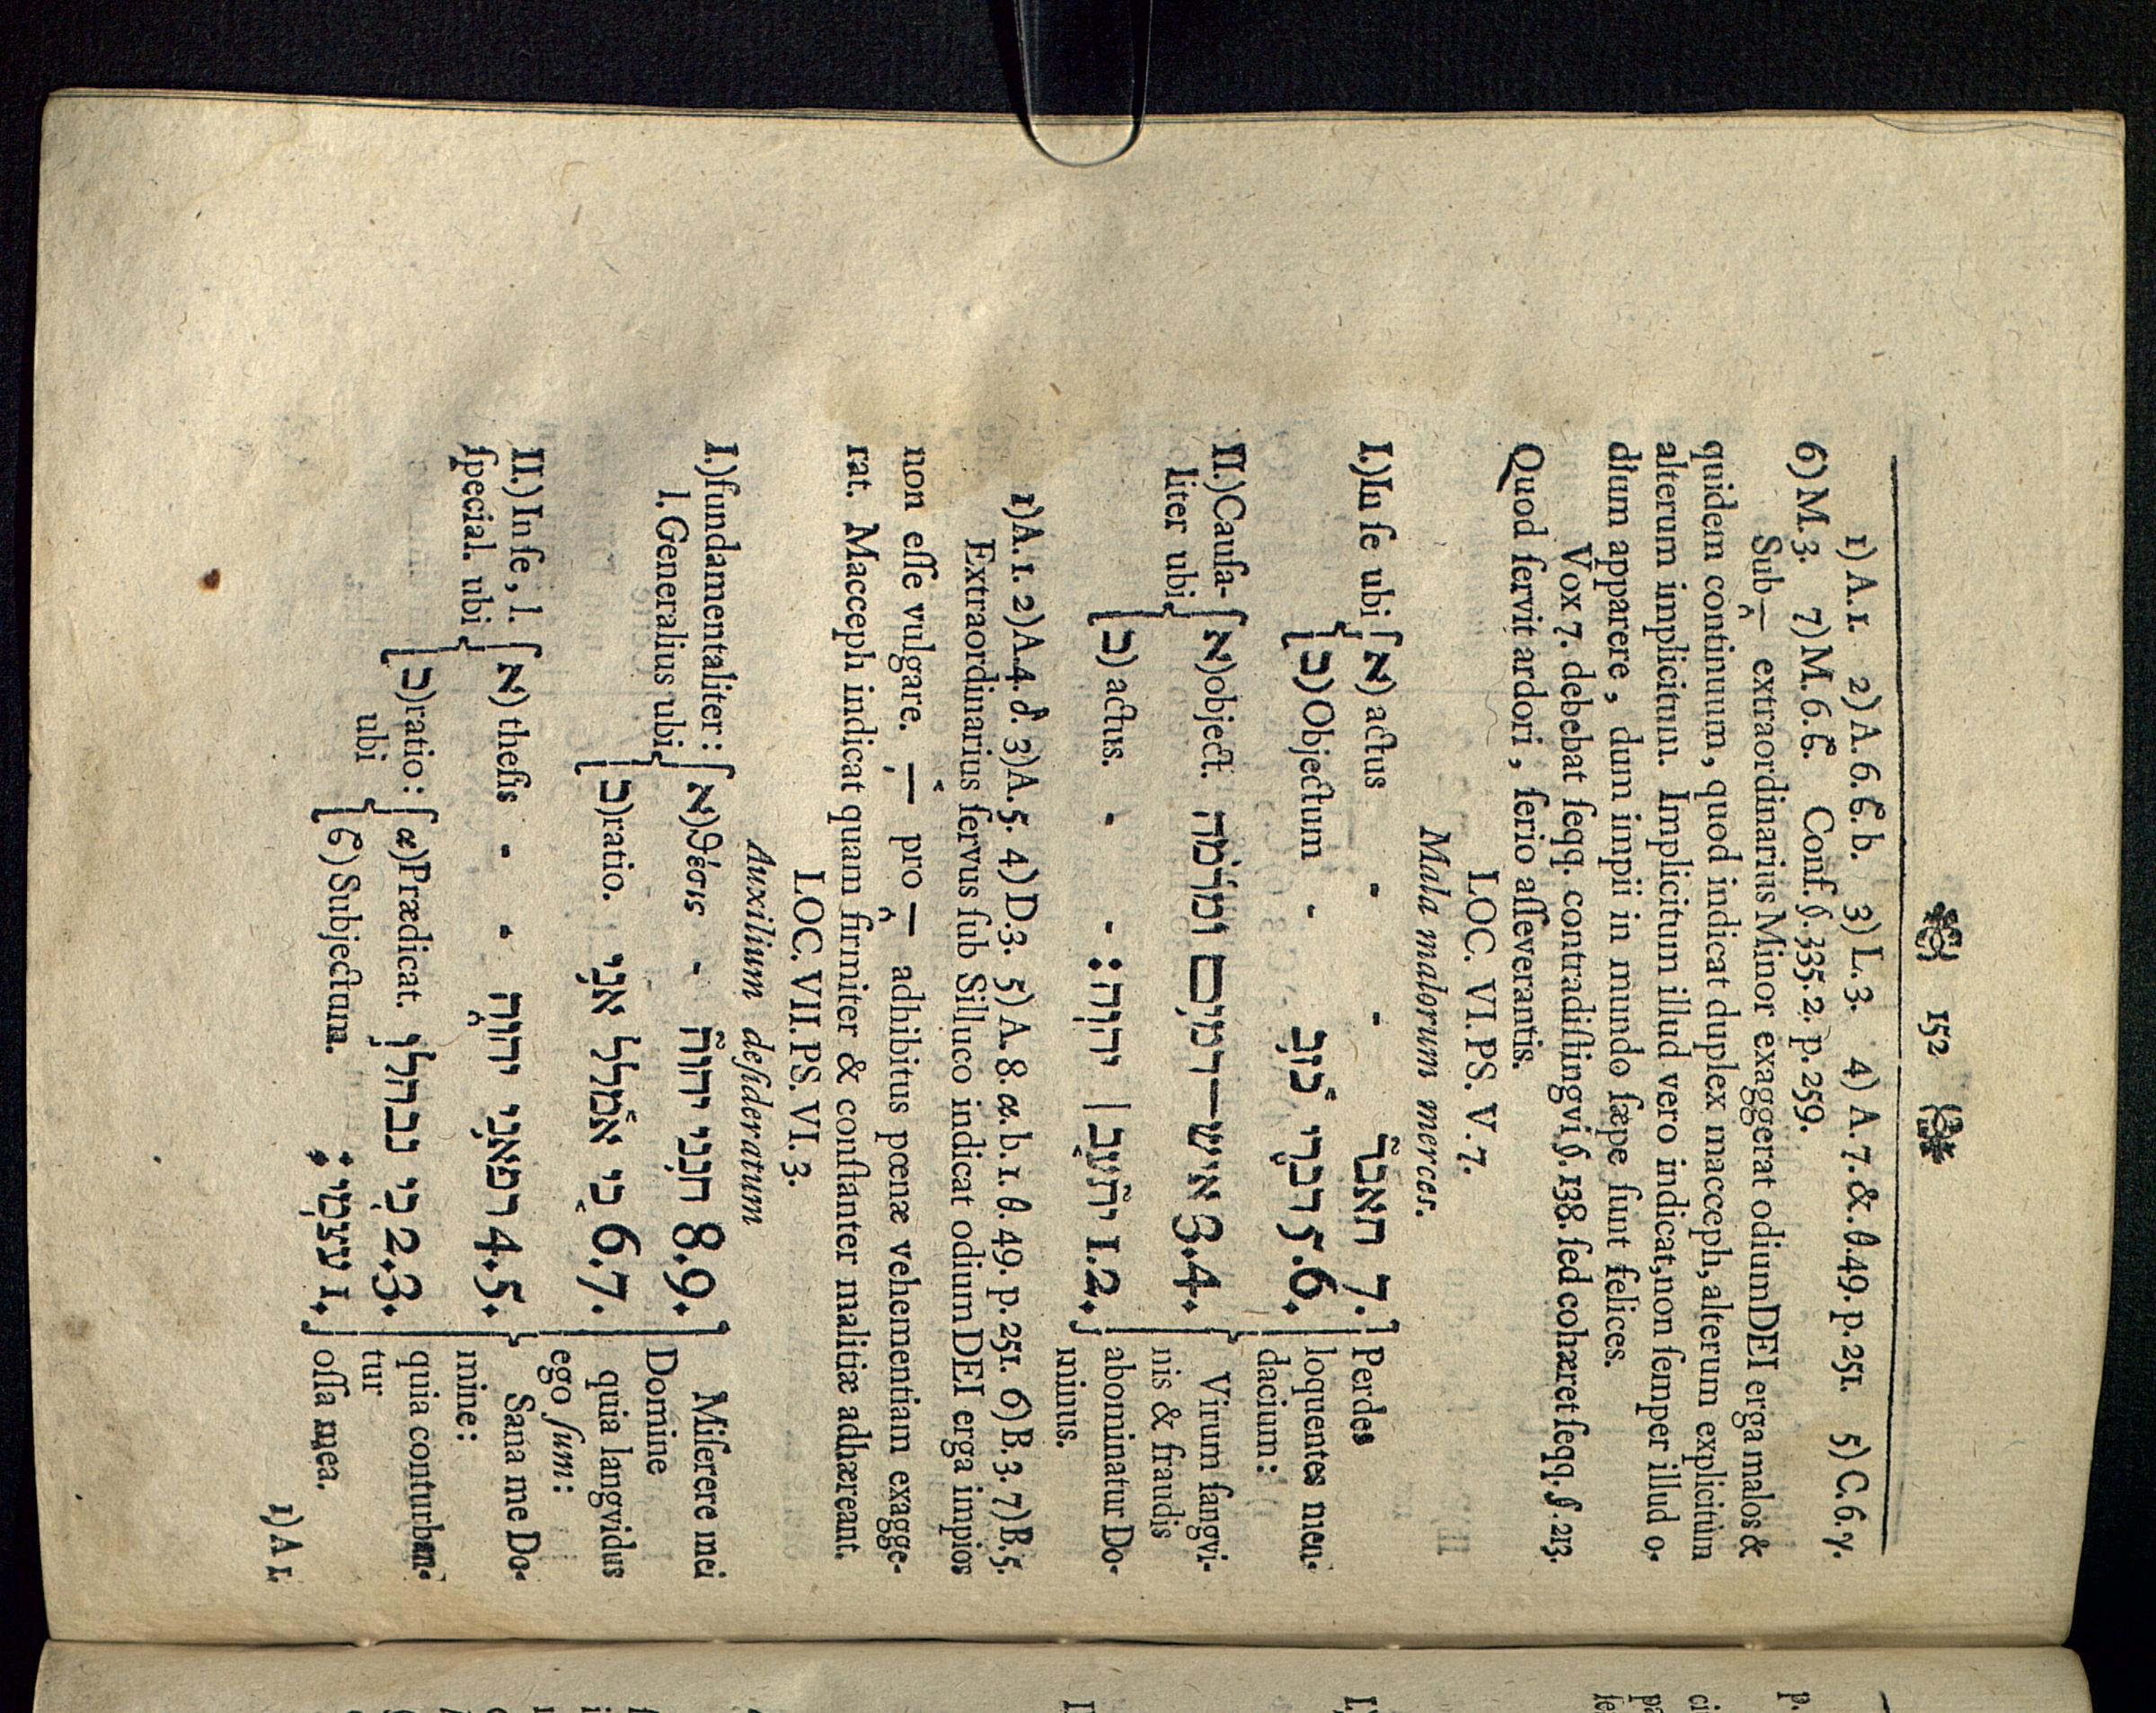 152
1) A.1. 2) A. 6. ϐ. b. 3) L. 3. 4) A. 7. &. θ. 49. p. 251. 5) C. 6. γ.
6) M. 3. 7) M. 6. ϐ. Conf. §. 335. 2. p. 259.
Sub ֑— extraordinarius Minor exaggerat odium DEI erga malos &
quidem continuum, quod indicat duplex macceph, alterum explicitum
alterum implicitum. Implicitum illud vero indicat, non ſemper illud o-
dium apparere, dum impii in mundo ſæpe ſunt felices.
Vox 7. debebat ſeqq. contradiſtingvi §. 138. ſed cohæret ſeqq. §. 213.
Quod ſervit ardori, ſerio aſſeverantis.
LOC. VI. PS. V. 7.
Mala malorum merces.
I.) In ſe ubi { א) actus - - תאבד 7. } Perdes
כ) Objectum - דברי כזב 5.6. loquentes men-
dacium:
II.) Cauſa- { א) object. איש־דמים ומרמה 3.4. } Virum ſangvi-
liter ubi nis & fraudis
כ) actus. - - יתעב | יהוה׃ 1.2. abominatur Do-
minus.
1) A. 1. 2) A. 4. δ. 3) A. 5. 4) D. 3. 5) A. 8. α. b. 1. θ. 49. p. 251. 6) B. 3. 7) B. 5.
Extraordinarius ſervus ſub Silluco indicat odium DEI erga impios
non eſſe vulgare. — pro — adhibitus pœnæ vehementiam exagge-
rat. Macceph indicat quam firmiter & conſtanter malitiæ adhæreant.
LOC. VII. PS. VI. 3.
Auxilium deſideratum
I.) fundamentaliter: { א) θέσις - חנני יהוה 8.9. } Miſerere mei
l. Generalius ubi Domine
כ) ratio. כי אמלל אני 6.7. quia langvidus
ego ſum:
II.) In ſe, l. { א) theſis - - רפאני יהוה 4.5. } Sana me Do-
ſpecial. ubi mine:
כ) ratio: { α) Prædicat. כי נבהלו 2.3. quia conturban-
ubi tur
ϐ) Subjectum. עצמי׃ 1. oſſa mea.
1) A 1.